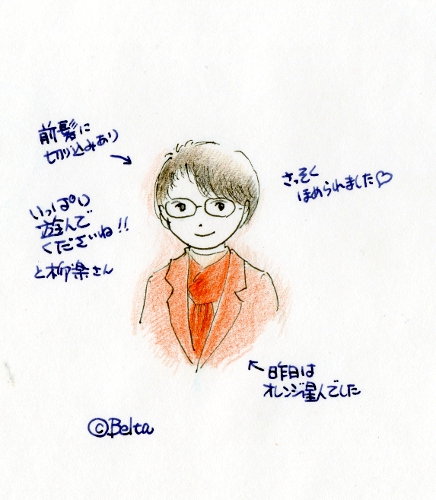 前髪に
切り込みあり
さっそく
ほめられました♡
いっぱい
遊んで
くださいね!!
と柳楽さん
昨日は
オレンジ星人でした
©Belta